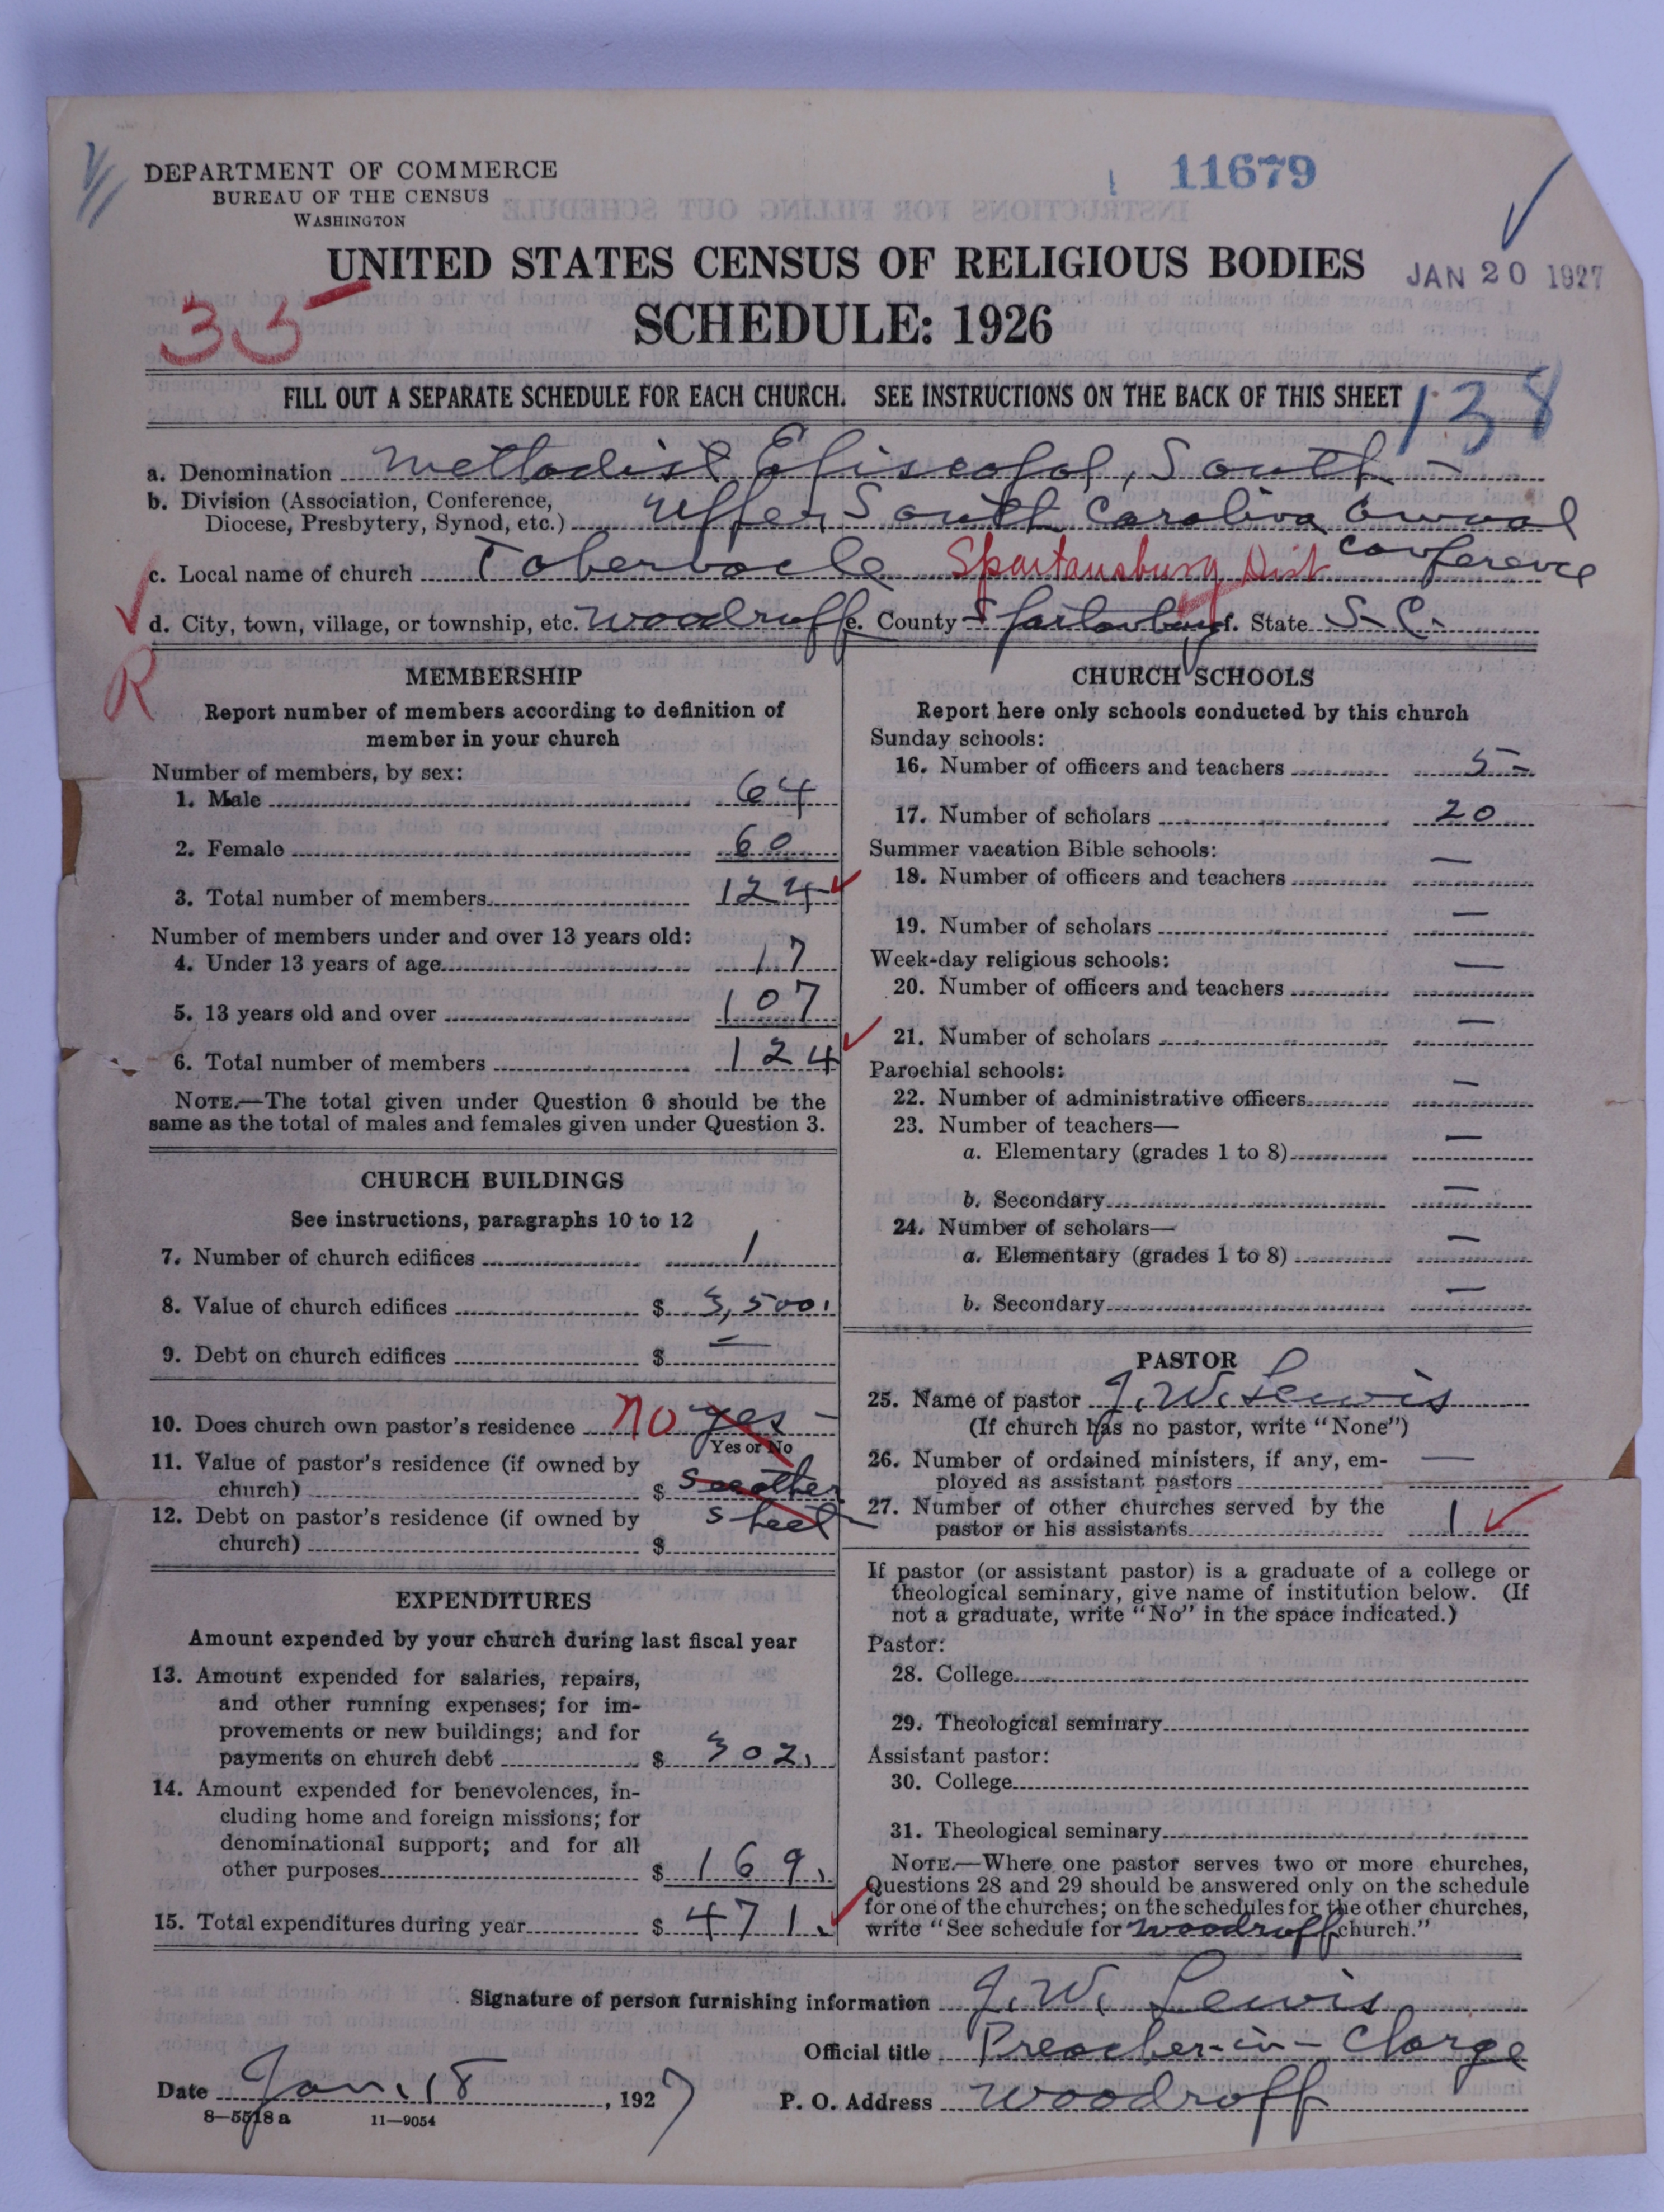 11679
DEPARTMENT OF COMMERCE
BUREAU OF THE CENSUS
WASHINGTON
UNITED STATES CENSUS OF RELIGIOUS BODIES
JAN 20 1927
SCHEDULE: 1926
33
FILL OUT A SEPARATE SCHEDULE FOR EACH CHURCH. SEE INSTRUCTIONS ON THE BACK OF THIS SHEET
138
a. Denomination Methodist Episcopal, South -
b. Division (Association, Conference,
Diocese, Presbytery, Synod, etc.) Upper South Carolina Annual
Conference
c. Local name of church Tabernacle Spartansburg Dist
d. City, town, village, or township, etc. Woodruff e. County Spartanburg f. State S. C.
R
MEMBERSHIP
Report number of members according to definition of
member in your church
Number of members, by sex:
1. Male 64
2. Female 60
3. Total number of members 124
Number of members under and over 13 years old:
4. Under 13 years of age 17
5. 13 years old and over 107
6. Total number of members 124
NOTE.—The total given under Question 6 should be the
same as the total of males and females given under Question 3.
CHURCH BUILDINGS
See instructions, paragraphs 10 to 12
7. Number of church edifices 1
8. Value of church edifices $ 3,500.
9. Debt on church edifices $ —
10. Does church own pastor's residence no yes -
Yes or No
11. Value of pastor's residence (if owned by
church) $ See other
12. Debt on pastor's residence (if owned by sheet
church) $
EXPENDITURES
Amount expended by your church during last fiscal year
13. Amount expended for salaries, repairs,
and other running expenses; for im-
provements or new buildings; and for
payments on church debt $ 302.
14. Amount expended for benevolences, in-
cluding home and foreign missions; for
denominational support; and for all
other purposes $ 169.
15. Total expenditures during year $ 471.
CHURCH SCHOOLS
Report here only schools conducted by this church
Sunday schools:
16. Number of officers and teachers 5 -
17. Number of scholars 20
Summer vacation Bible schools:
18. Number of officers and teachers —
19. Number of scholars —
Week-day religious schools:
20. Number of officers and teachers —
21. Number of scholars —
Parochial schools:
22. Number of administrative officers —
23. Number of teachers—
a. Elementary (grades 1 to 8) —
b. Secondary —
24. Number of scholars—
a. Elementary (grades 1 to 8) —
b. Secondary —
PASTOR
25. Name of pastor J. W. Lewis
(If church has no pastor, write "None")
26. Number of ordained ministers, if any, em-
ployed as assistant pastors —
27. Number of other churches served by the
pastor or his assistants 1
If pastor (or assistant pastor) is a graduate of a college or
theological seminary, give name of institution below. (If
not a graduate, write "No" in the space indicated.)
Pastor:
28. College
29. Theological seminary
Assistant pastor:
30. College
31. Theological seminary
NOTE.—Where one pastor serves two or more churches,
Questions 28 and 29 should be answered only on the schedule
for one of the churches; on the schedules for the other churches,
write "See schedule for Woodruff church."
Signature of person furnishing information J. W. Lewis
Official title Preacher-in-Charge
Date Jan. 18, 1927
P. O. Address Woodruff
8-5518a 11-9054